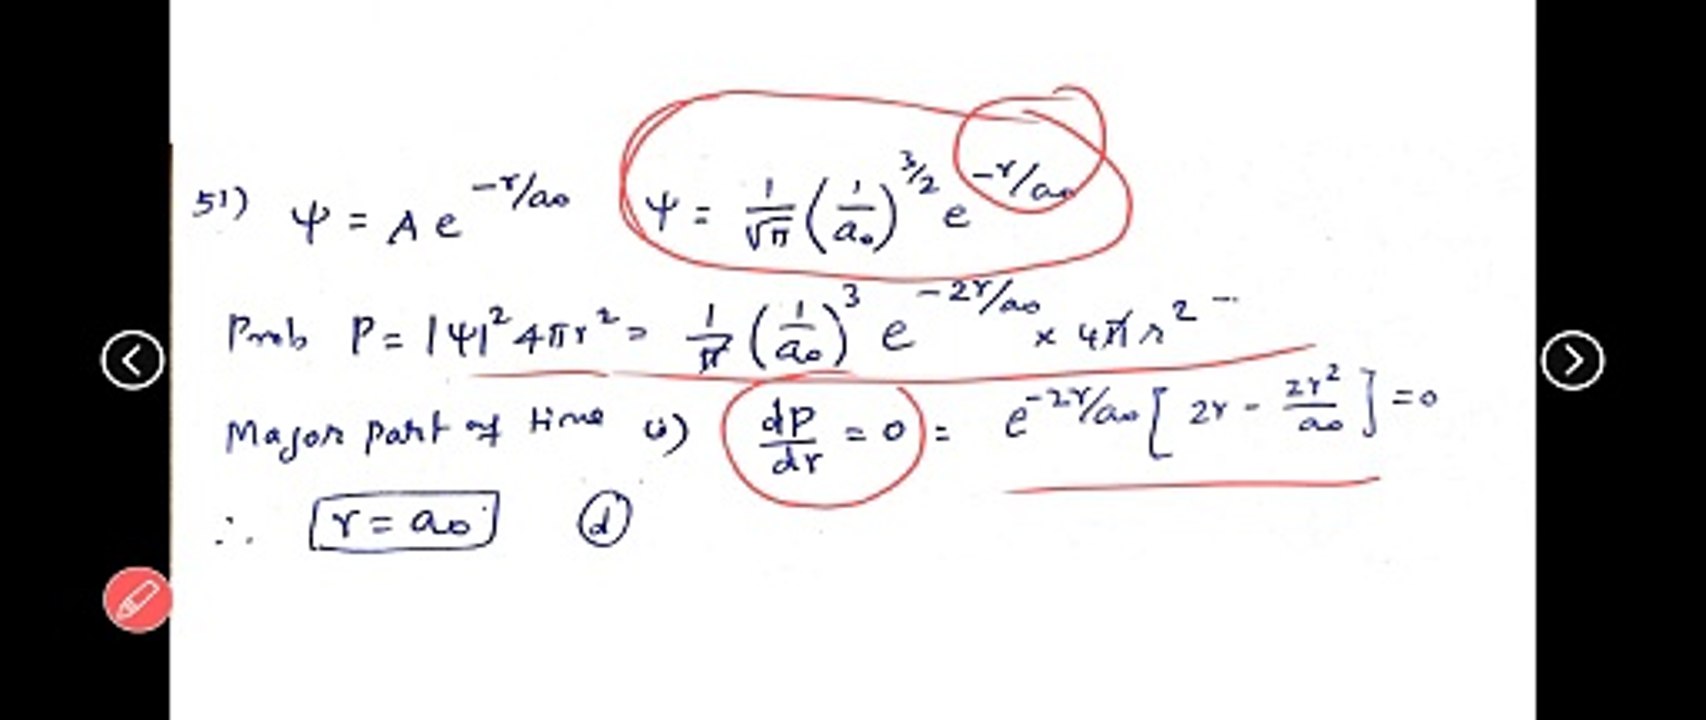 51) ψ = A e^{-r/a₀}   ψ = 1/√π (1/a₀)^{3/2} e^{-r/a₀}
Prob P = |ψ|² 4πr² = 1/π (1/a₀)³ e^{-2r/a₀} × 4πr²
Major part of time (i) dP/dr = 0 = e^{-2r/a₀} [2r - 2r²/a₀] = 0
∴ r = a₀   (d)